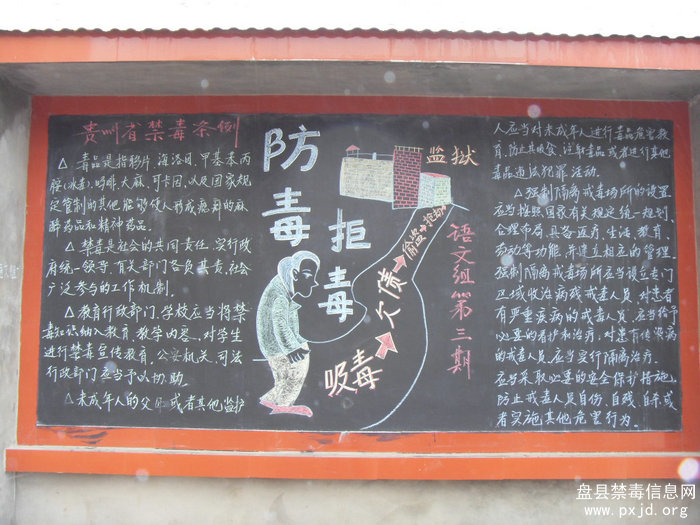 贵州省禁毒条例
△ 毒品是指鸦片、海洛因、甲基苯丙
胺(冰毒)、吗啡、大麻、可卡因,以及国家规
定管制的其他能够使人形成瘾癖的麻
醉药品和精神药品。
△ 禁毒是社会的共同责任,实行政
府统一领导,有关部门各负其责,社会
广泛参与的工作机制。
△ 教育行政部门、学校应当将禁
毒知识纳入教育、教学内容,对学生
进行禁毒宣传教育,公安机关、司法
行政部门应当予以协助。
△ 未成年人的父母或者其他监护
防毒
拒毒
监狱
吸毒→欠债→偷盗→抢劫
语文组第三期
人应当对未成年人进行毒品危害教
育,防止其吸食、注射毒品或者进行其他
毒品违法犯罪活动。
△强制隔离戒毒场所的设置
应当按照国家有关规定统一规划,
合理布局,具备医疗、生活、教育、
劳动等功能,并建立相应的管理。
强制隔离戒毒场所应当设立专门
区域收治病残戒毒人员,对患者
有严重疾病的戒毒人员,应当给予
必要的看护和治疗,对患有传染病
的戒毒人员,应当实行隔离治疗。
应当采取必要的安全保护措施,
防止戒毒人员自伤、自残、自杀或
者实施其他危害行为。
盘县禁毒信息网
www.pxjd.org